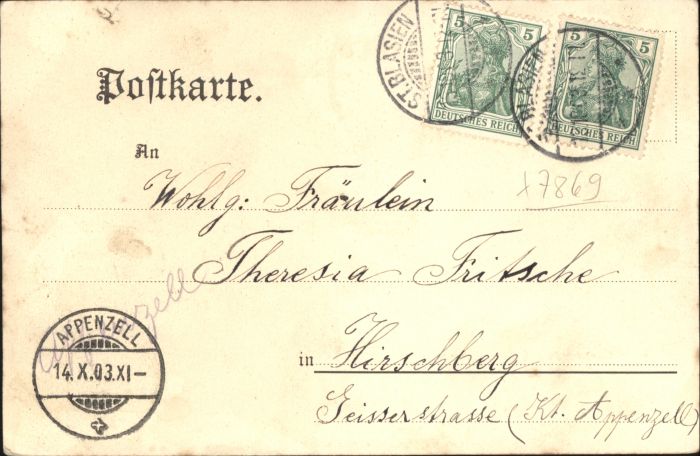 5 5 5 5
DEUTSCHES REICH DEUTSCHES REICH
ST. BLASIEN
BLASIEN
Postkarte.
An
x7869
Wohlg: Fräulein
Theresia Fritsche
Appenzell
APPENZELL
14.X.03.XI-
in Hirschberg
Geisserstrasse (Kt. Appenzell)